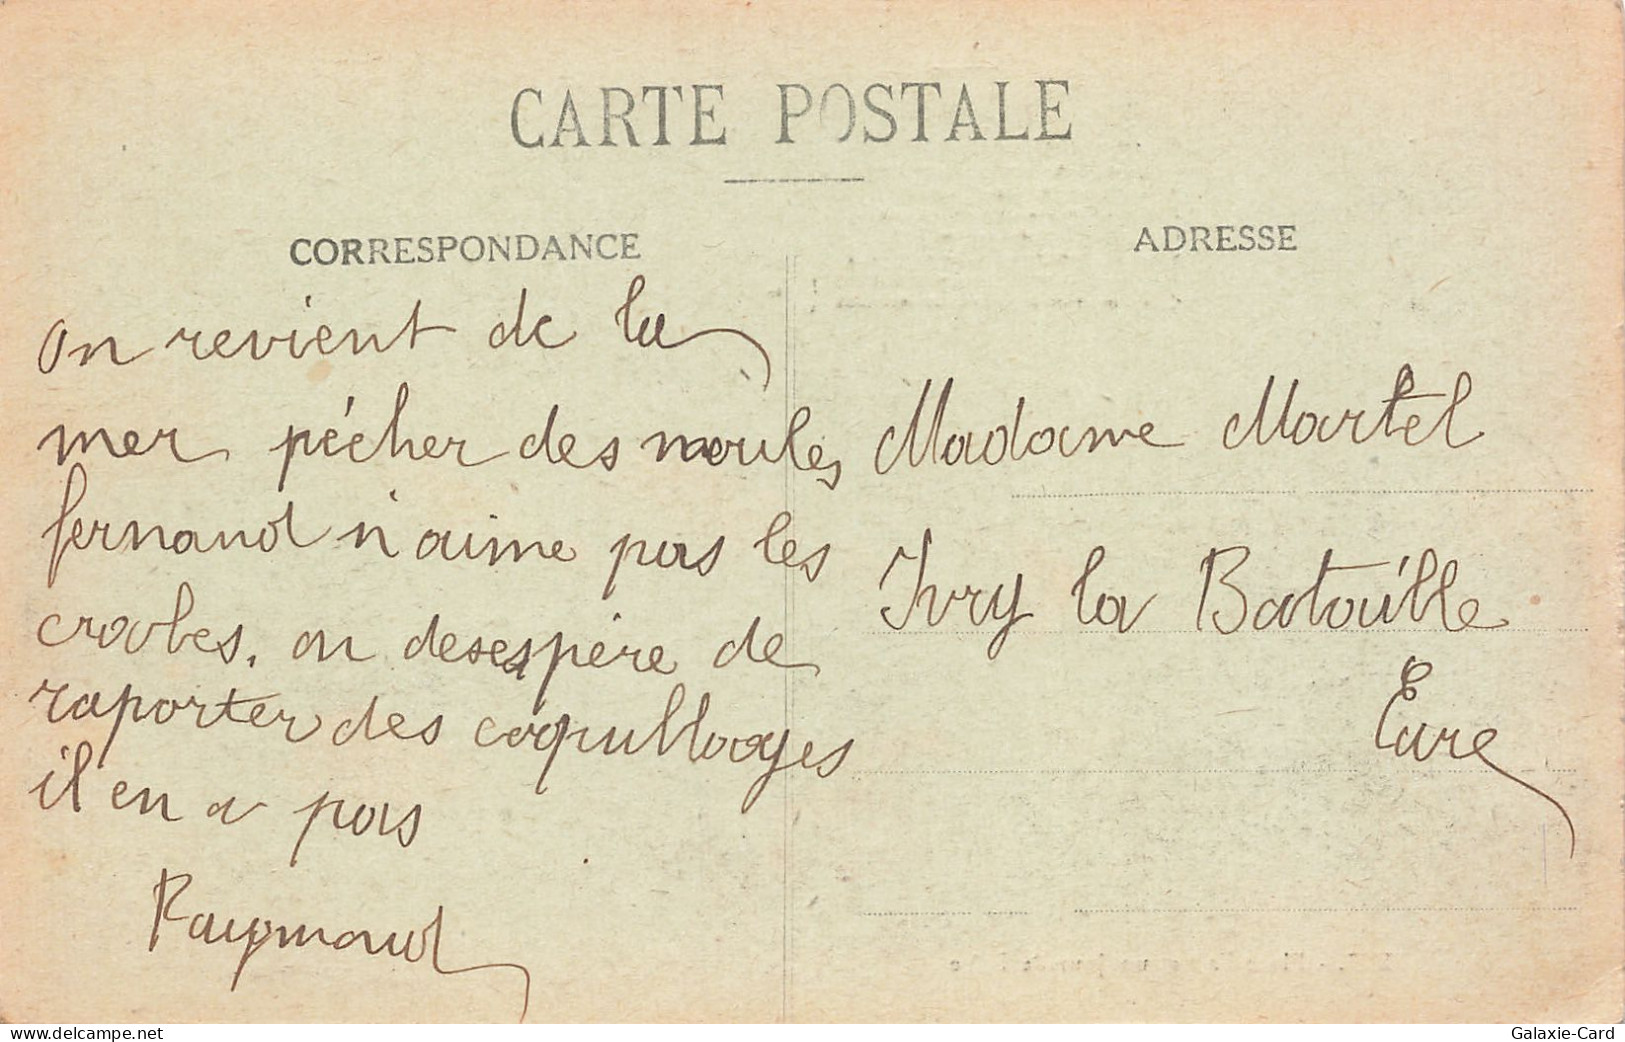 CARTE POSTALE
CORRESPONDANCE
on revient de la
mer pécher des moules
fernand n'aime pas les
crabes. on desespère de
raporter des coquillages
il en a pas
Raymond
ADRESSE
Madame Martel
Ivry la Batouille
Eure
www.delcampe.net
Galaxie-Card